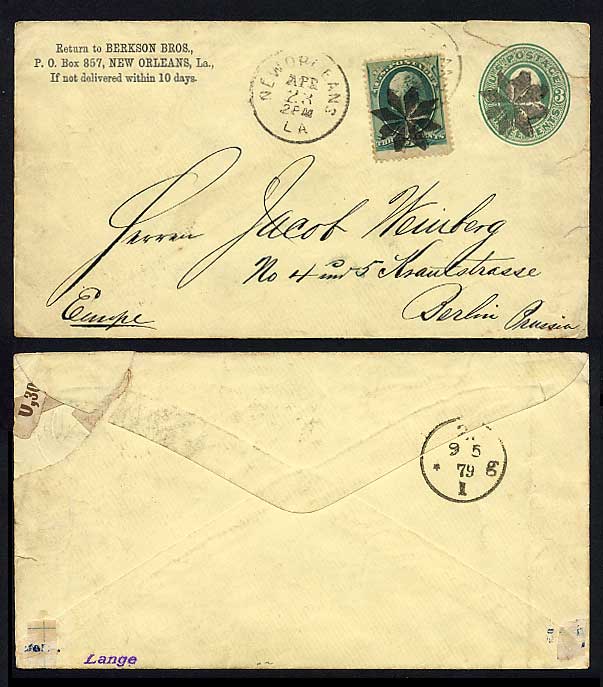 Return to BERKSON BROS.,
P. O. Box 857, NEW ORLEANS, La.,
If not delivered within 10 days.
NEW ORLEANS
APR
23
2PM
LA
U.S. POSTAGE
Herren Jacob Weinberg
No 4 und 5 Krautstrasse
Berlin Prussia
Europe
U,30
9 5
* 79 8
I
Lange